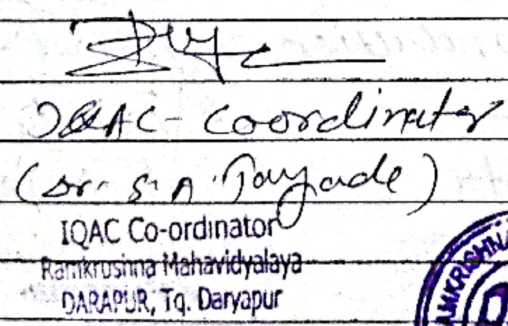 IQAC- Coordinator
(Dr. S.A. Tayade)
IQAC Co-ordinator
Ramkrushna Mahavidyalaya
DARAPUR, Tq. Daryapur
AMKRISHNA